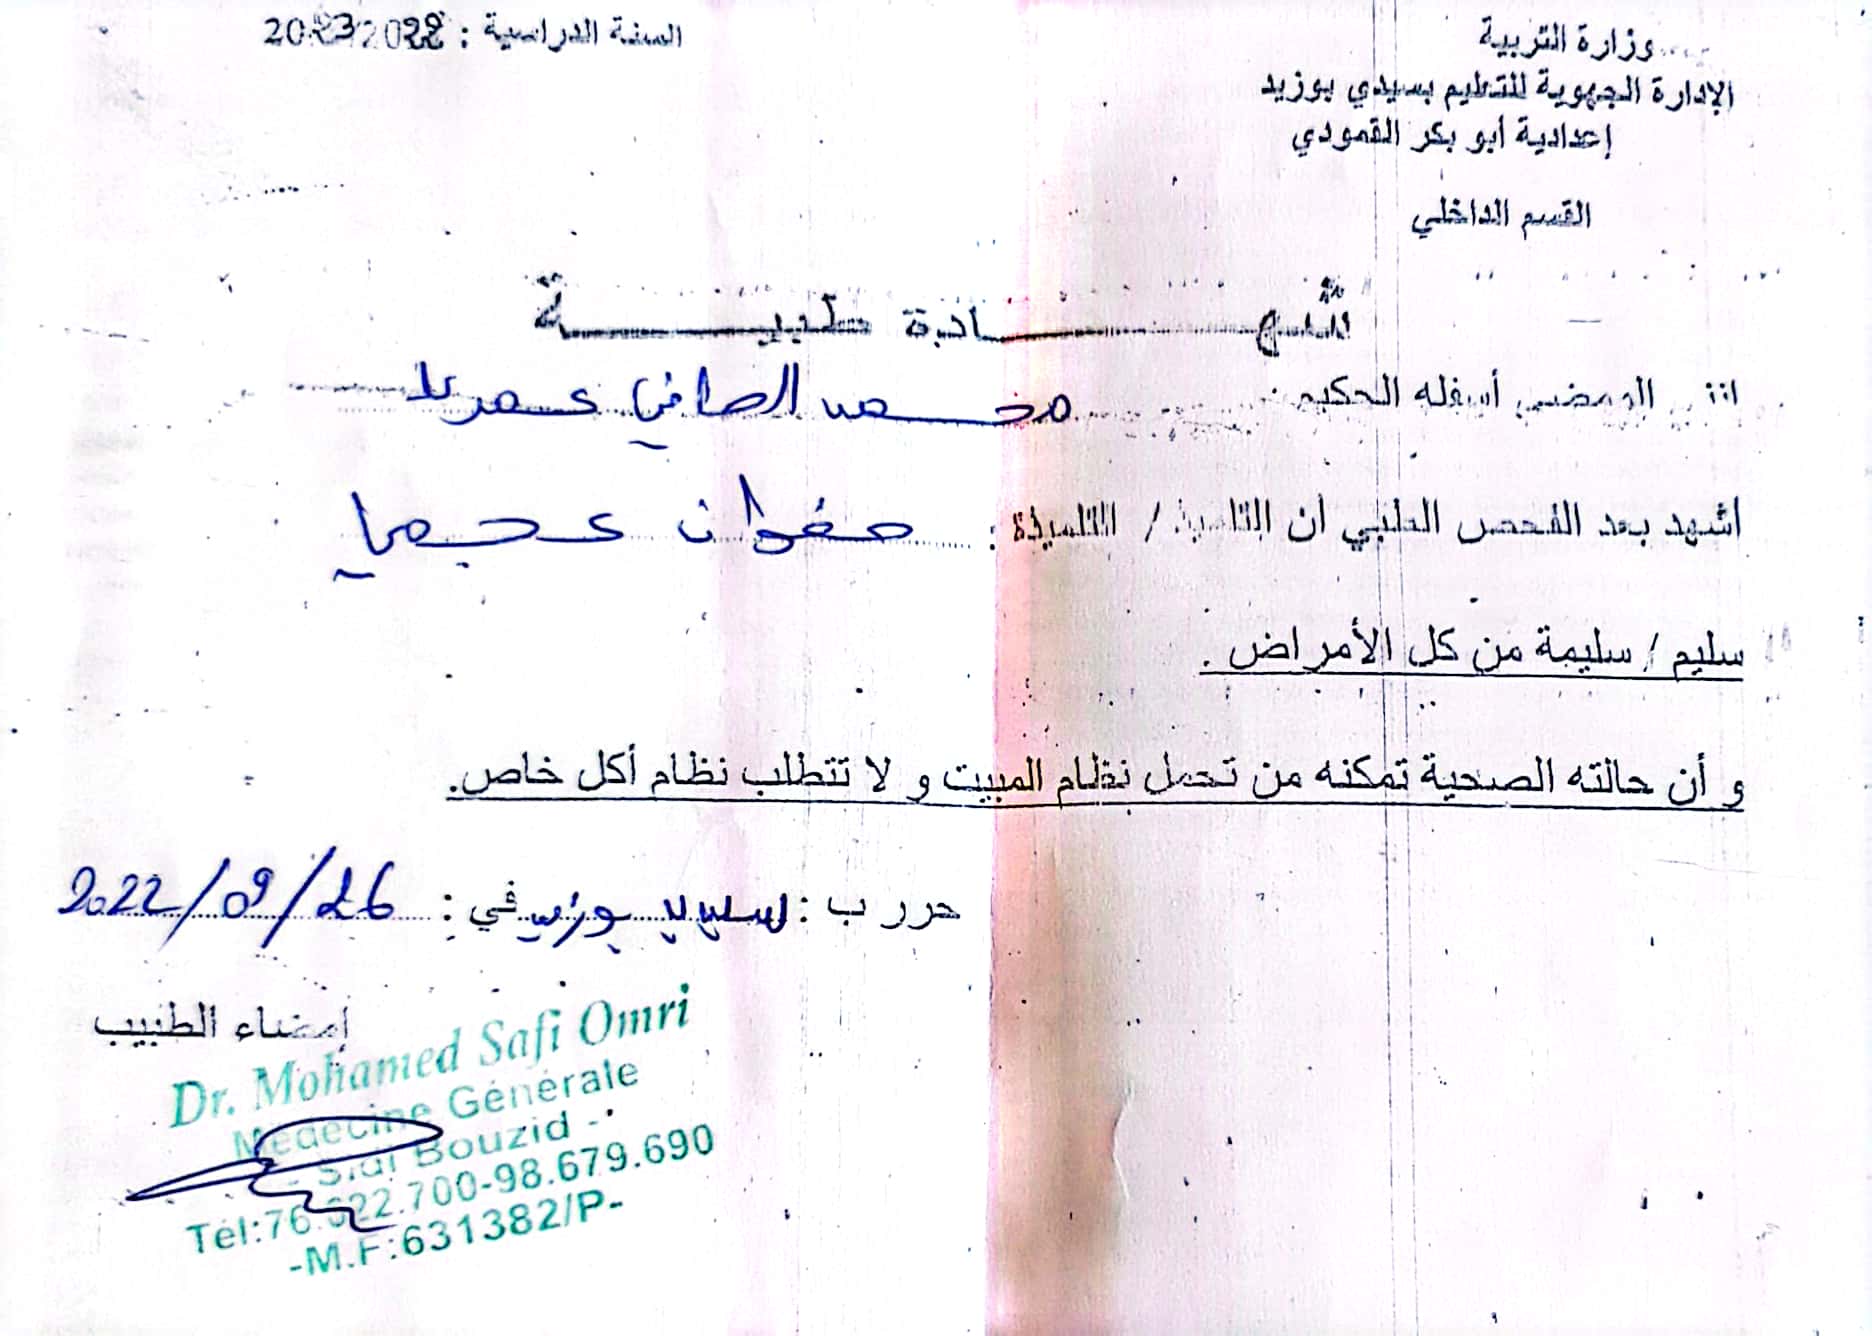 وزارة التربية
السنة الدراسية : 2022/2023
الإدارة الجهوية للتعليم بسيدي بوزيد
إعدادية أبو بكر القمودي
القسم الداخلي
شهــــــــادة طبيــــــــة
إنني الممضي أسفله الحكيم : محمد الصافي عمري
أشهد بعد الفحص الطبي أن التلميذ / التلميذة : صفوان عجمي
سليم / سليمة من كل الأمراض .
و أن حالته الصحية تمكنه من تحمل نظام المبيت و لا تتطلب نظام أكل خاص.
حرر ب : سيدي بوزيد في : 2022/09/26
إمضاء الطبيب
Dr. Mohamed Safi Omri
Médecine Générale
- Sidi Bouzid -
Tél:76.622.700-98.679.690
-M.F:631382/P-